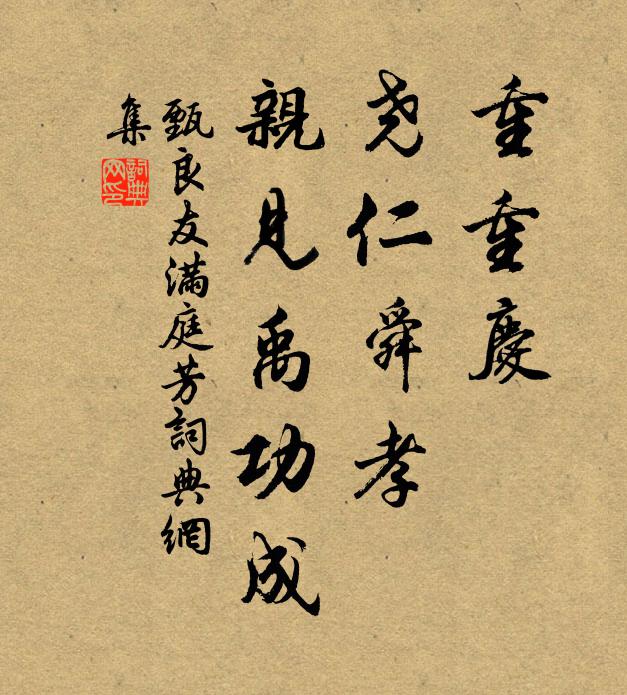 重重慶
尧仁舜孝
親見禹功成
甄良友滿庭芳詞典網
集
詞典
网印